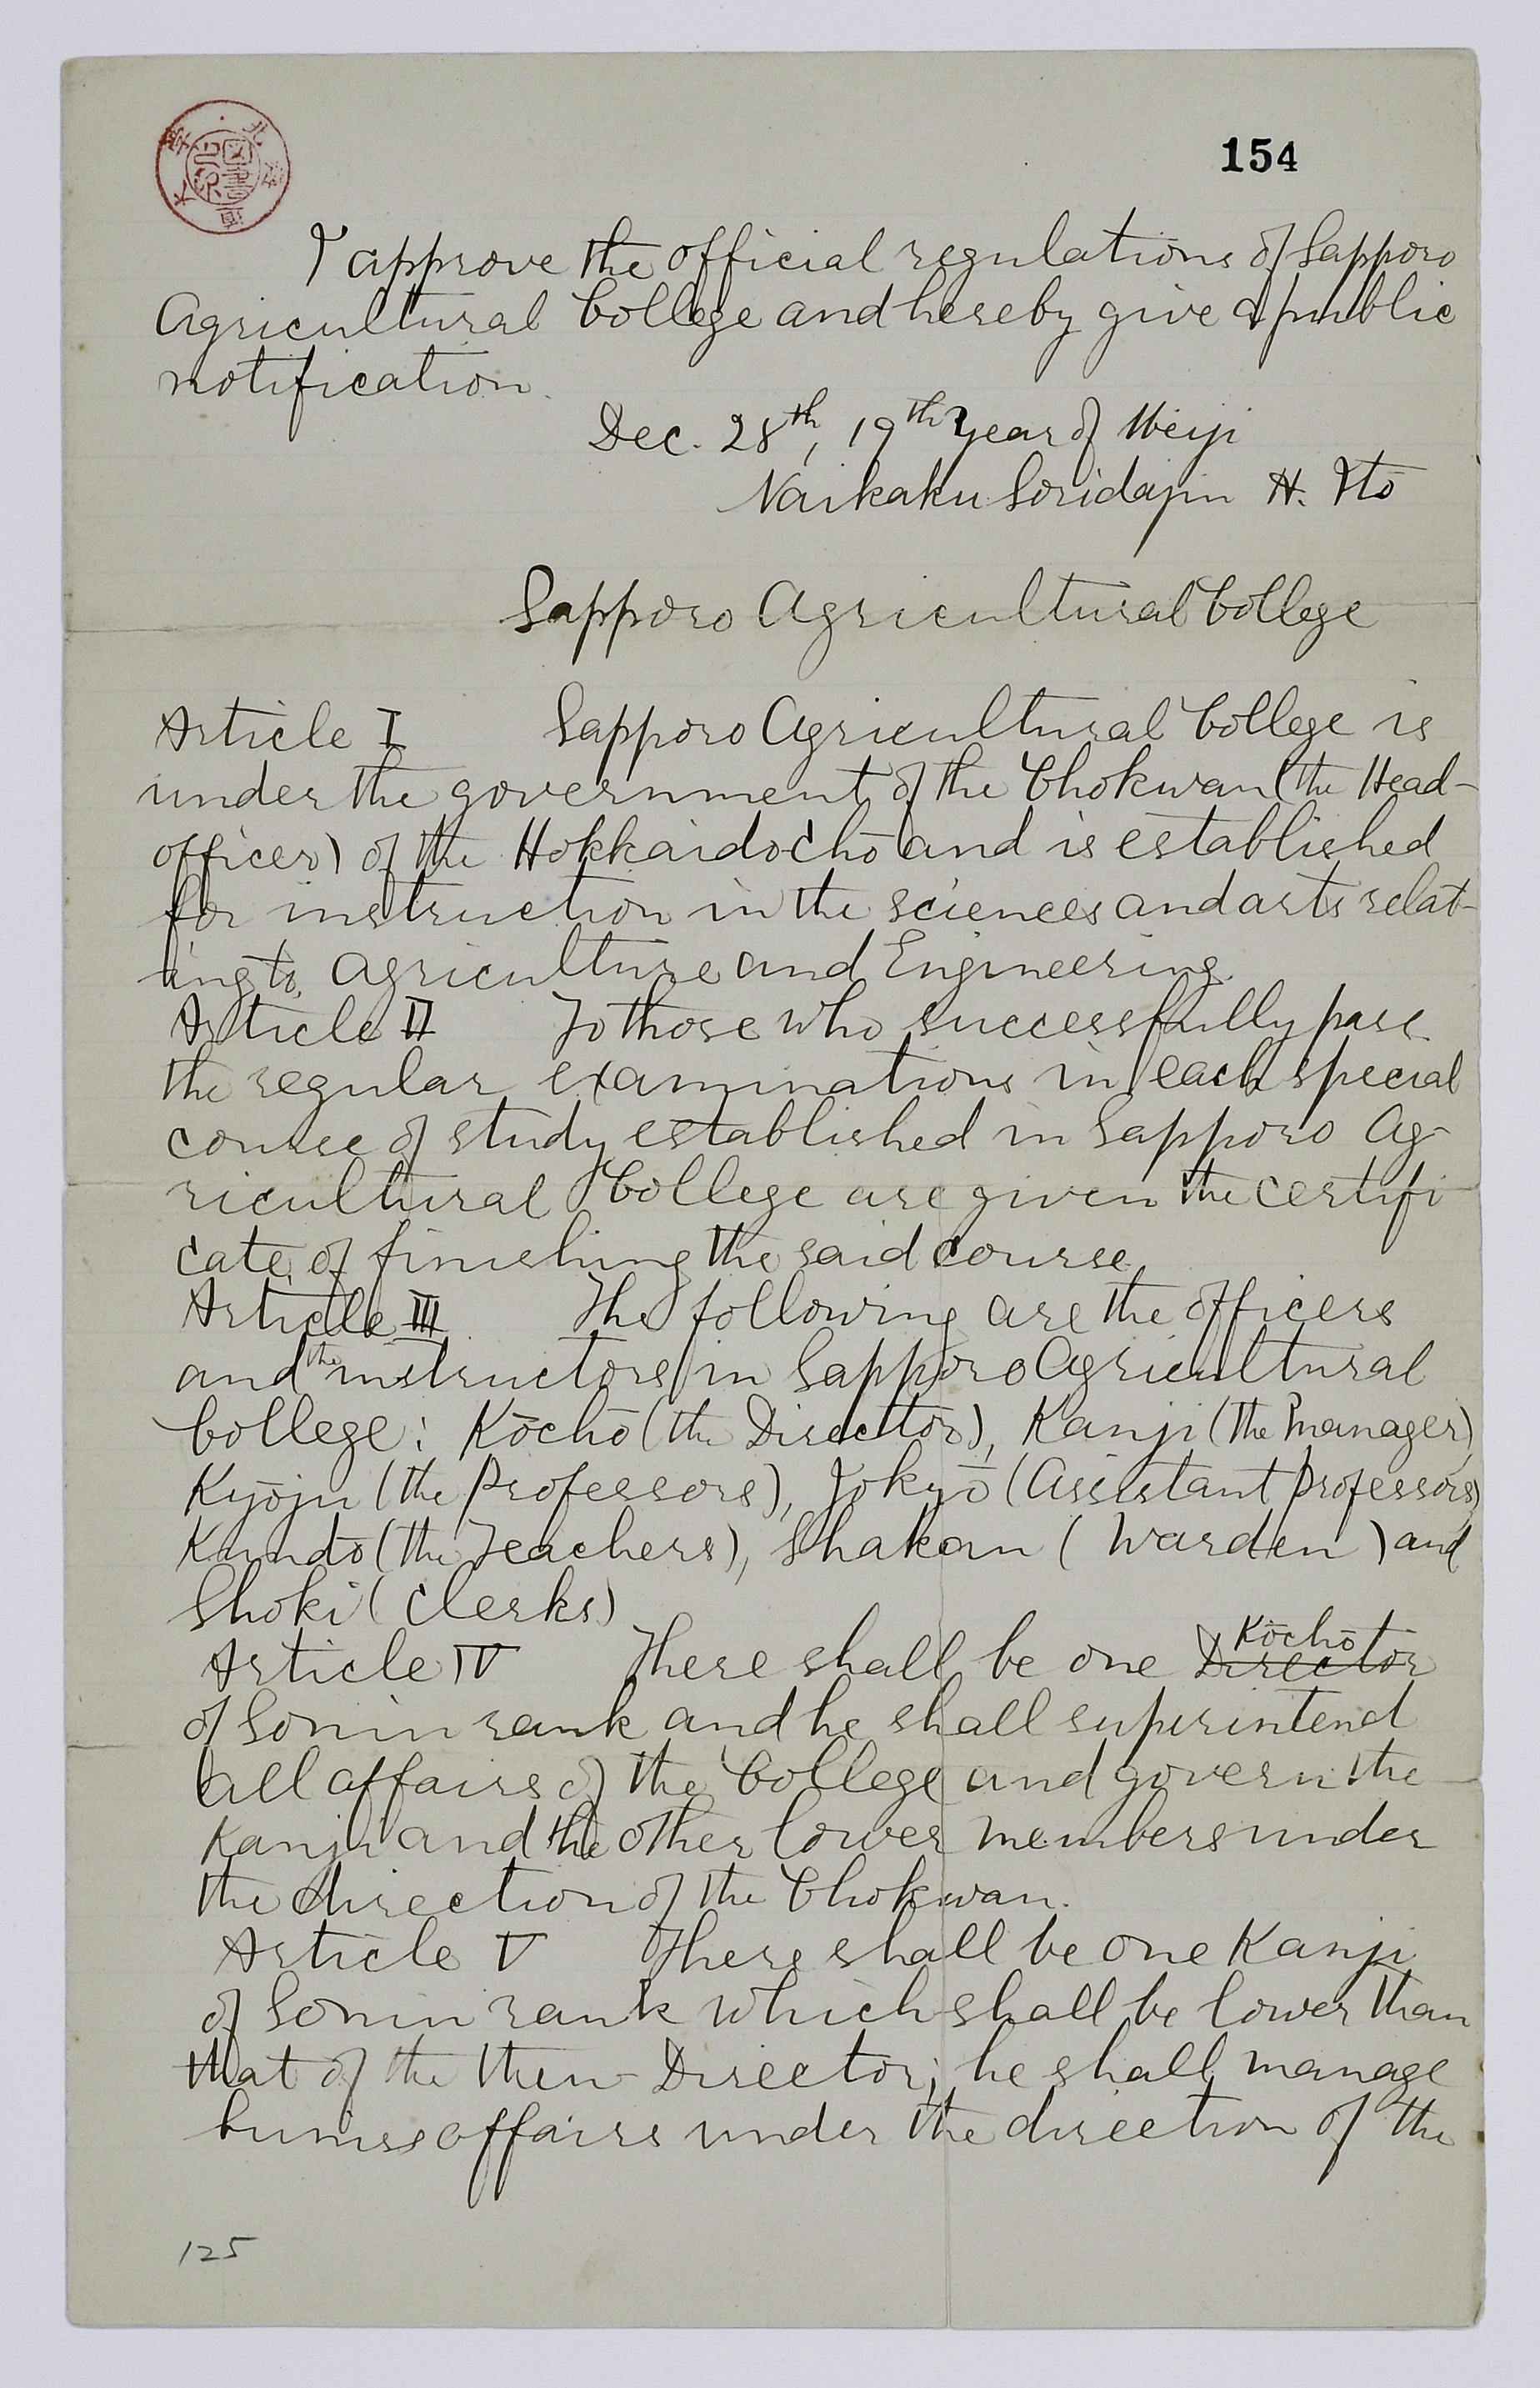 154
北海道大學
図書
I approve the official regulations of Sapporo
Agricultural College and hereby give a public
notification.
Dec. 28th, 19th year of Meiji
Naikaku Soridajin H. Itō
Sapporo Agricultural College
Article I Sapporo Agricultural College is
under the government of the Chokwan (the Head-
officer) of the Hokkaidochō and is established
for instruction in the sciences and arts relat-
ing to Agriculture and Engineering.
Article II To those who successfully pass
the regular examinations in each special
course of study established in Sapporo Ag-
ricultural College are given the certifi-
cate of finishing the said course.
Article III The following are the officers
and the instructors in Sapporo Agricultural
College: Kōchō (the Director), Kanji (the Manager)
Kyōju (the Professors), Jokyō (Assistant Professors)
Kundō (the Teachers), Shakan (Warden) and
Shoki (Clerks)
Article IV There shall be one Director Kōchō
of Sonin rank and he shall superintend
all affairs of the College and govern the
Kanji and the other lower members under
the direction of the Chokwan.
Article V There shall be one Kanji
of Sonin rank which shall be lower than
that of the then Director; he shall manage
affairs under the direction of the
125